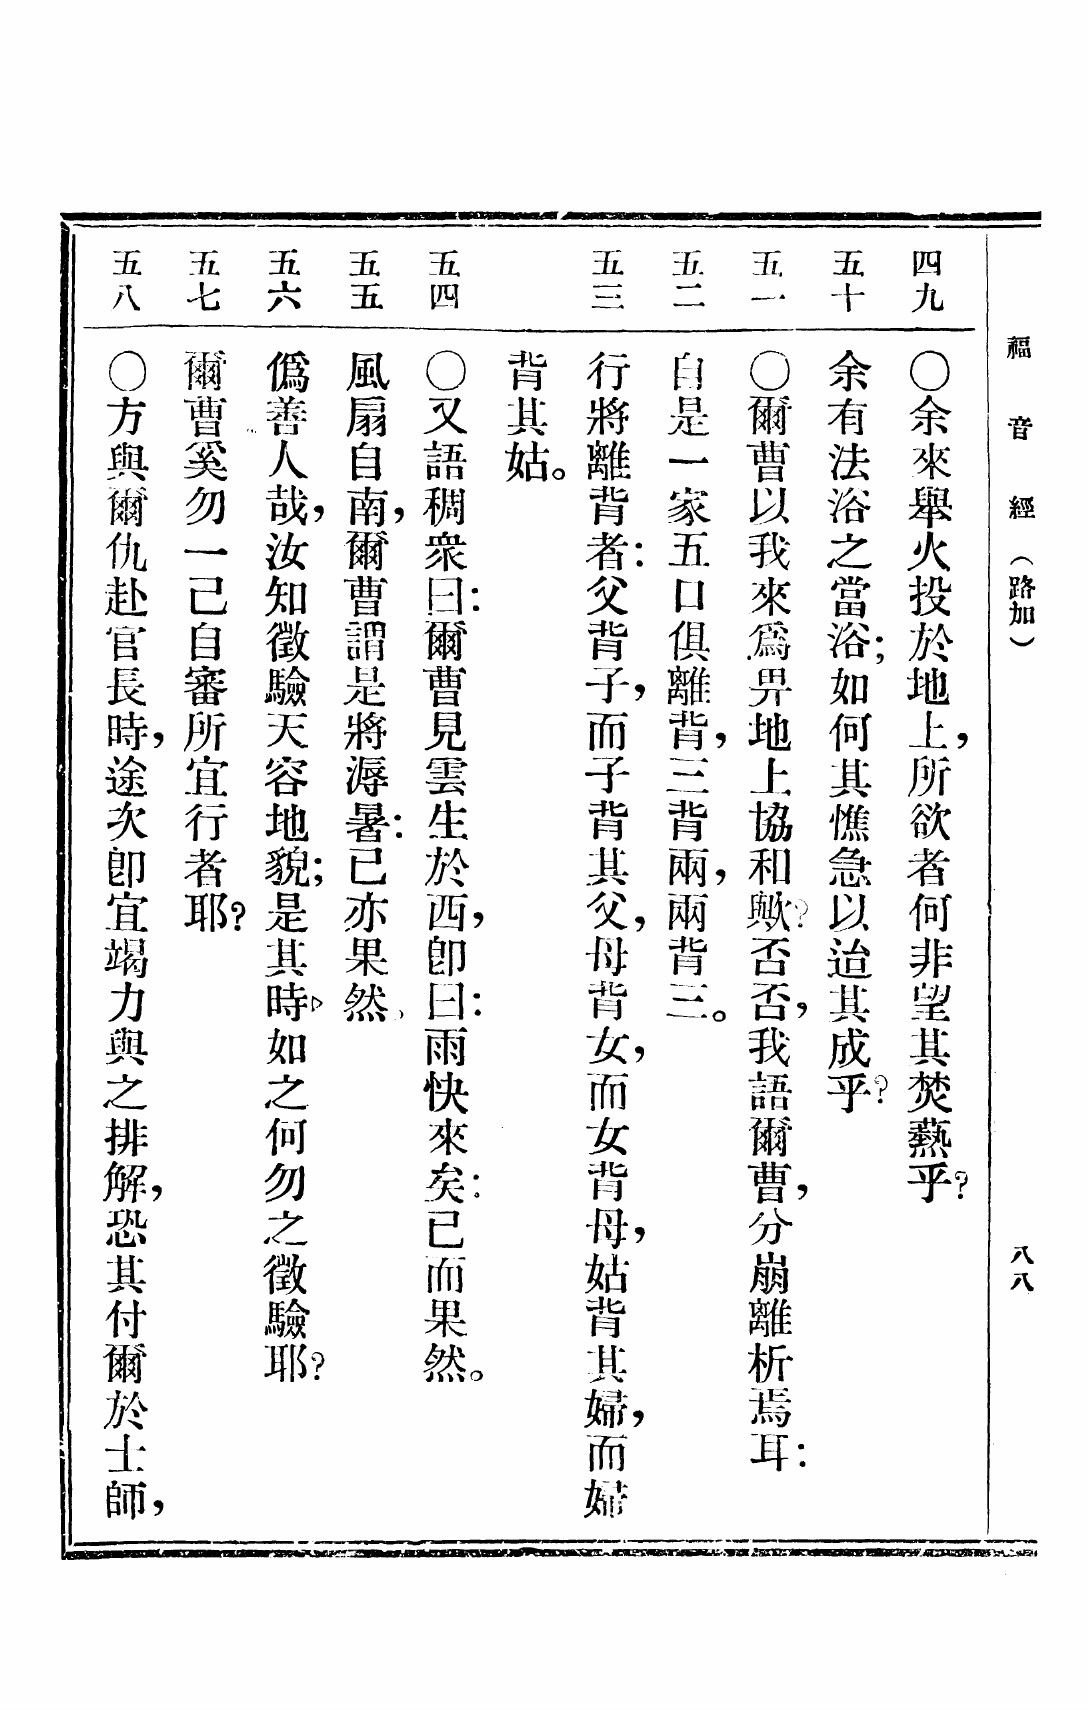 福音經（路加）
八八
四九
〇余來舉火投於地上，所欲者何非望其焚爇乎？
五十
余有法浴之當浴；如何其憔急以迨其成乎？
五一
〇爾曹以我來爲畀地上協和歟？否否，我語爾曹，分崩離析焉耳：
五二
自是一家五口俱離背，三背兩，兩背三。
五三
行將離背者：父背子，而子背其父，母背女，而女背母，姑背其婦，而婦
背其姑。
五四
〇又語稠衆曰：爾曹見雲生於西，卽曰：雨快來矣：已而果然。
五五
風扇自南，爾曹謂是將溽暑：已亦果然、
五六
僞善人哉，汝知徵驗天容地貌；是其時，如之何勿之徵驗耶？
五七
爾曹奚勿一己自審所宜行者耶？
五八
〇方與爾仇赴官長時，途次卽宜竭力與之排解，恐其付爾於士師，